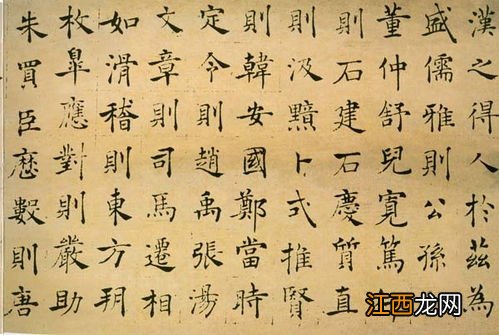 漢之得人於茲為
盛儒雅則公孫
董仲舒兒寬篤
則石建石慶質直
則汲黯卜式推賢
則韓安國鄭當時
定令則趙禹張湯
文章則司馬遷相
如滑稽則東方朔
枚皋應對則嚴助
朱買臣曆數則唐
江西龙网